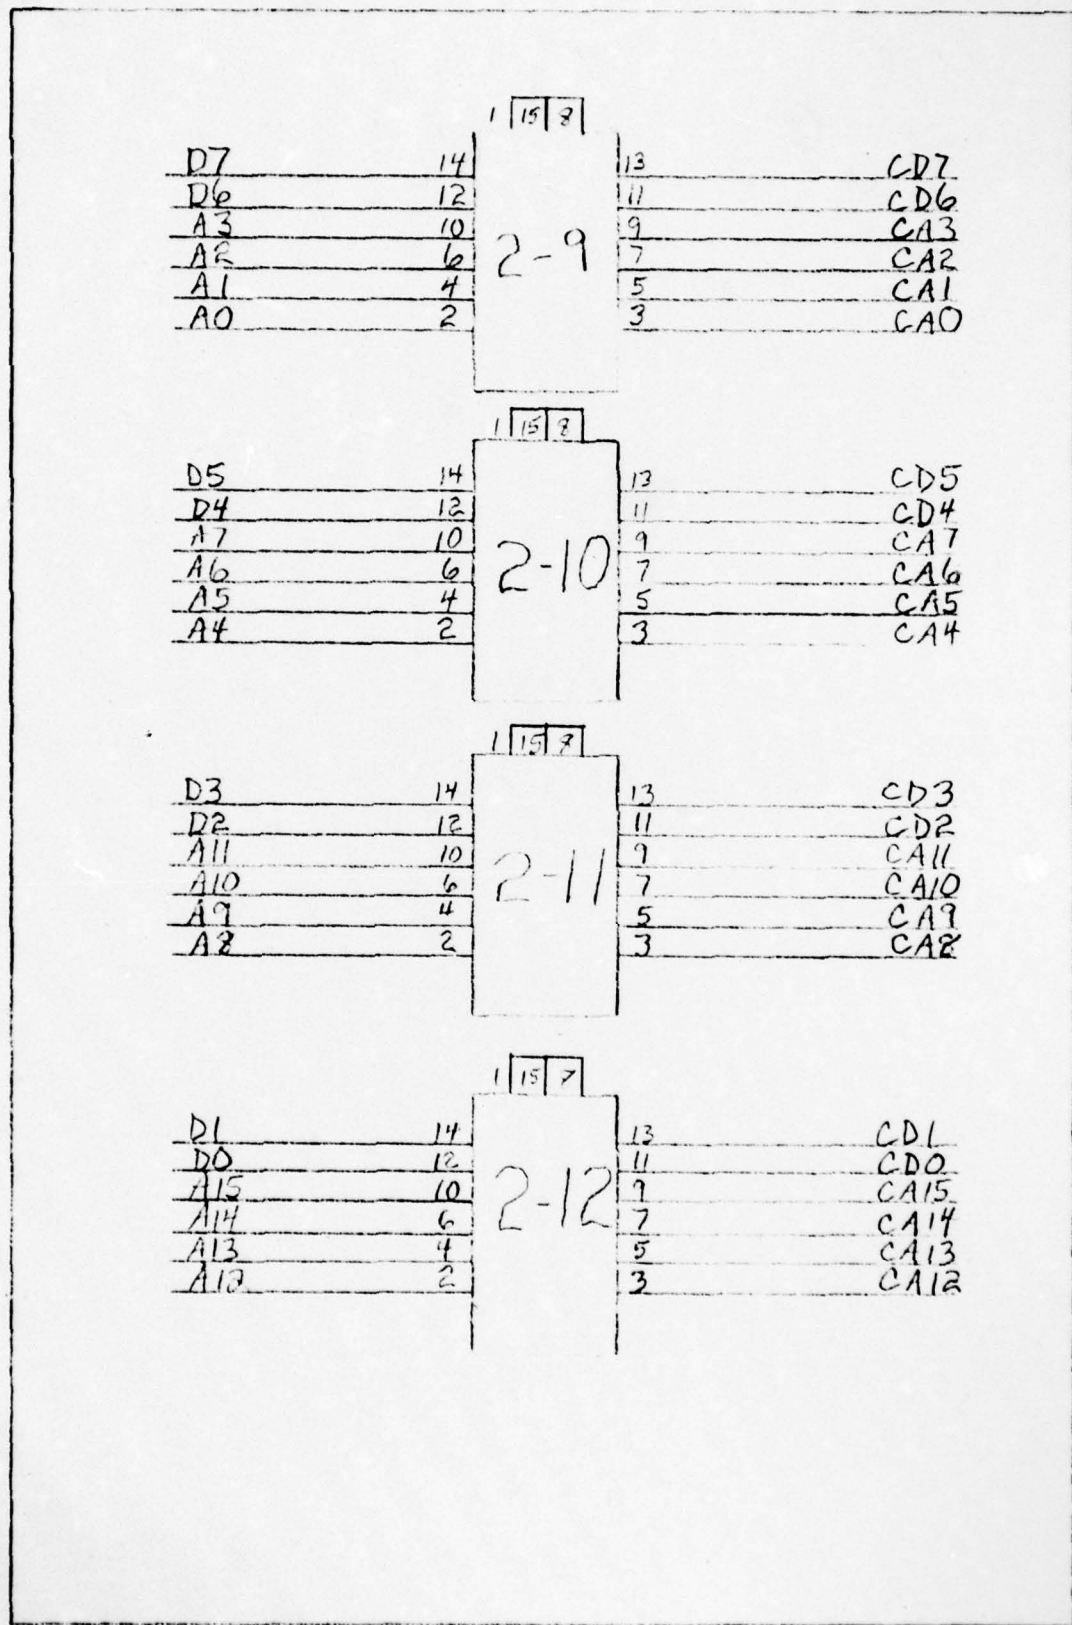 1 15 8
D7 14 13 CD7
D6 12 11 CD6
A3 10 9 CA3
A2 6 7 CA2
A1 4 5 CA1
A0 2 3 CA0
2-9
1 15 8
D5 14 13 CD5
D4 12 11 CD4
A7 10 9 CA7
A6 6 7 CA6
A5 4 5 CA5
A4 2 3 CA4
2-10
1 15 8
D3 14 13 CD3
D2 12 11 CD2
A11 10 9 CA11
A10 6 7 CA10
A9 4 5 CA9
A8 2 3 CA8
2-11
1 15 7
D1 14 13 CD1
D0 12 11 CD0
A15 10 9 CA15
A14 6 7 CA14
A13 4 5 CA13
A12 2 3 CA12
2-12